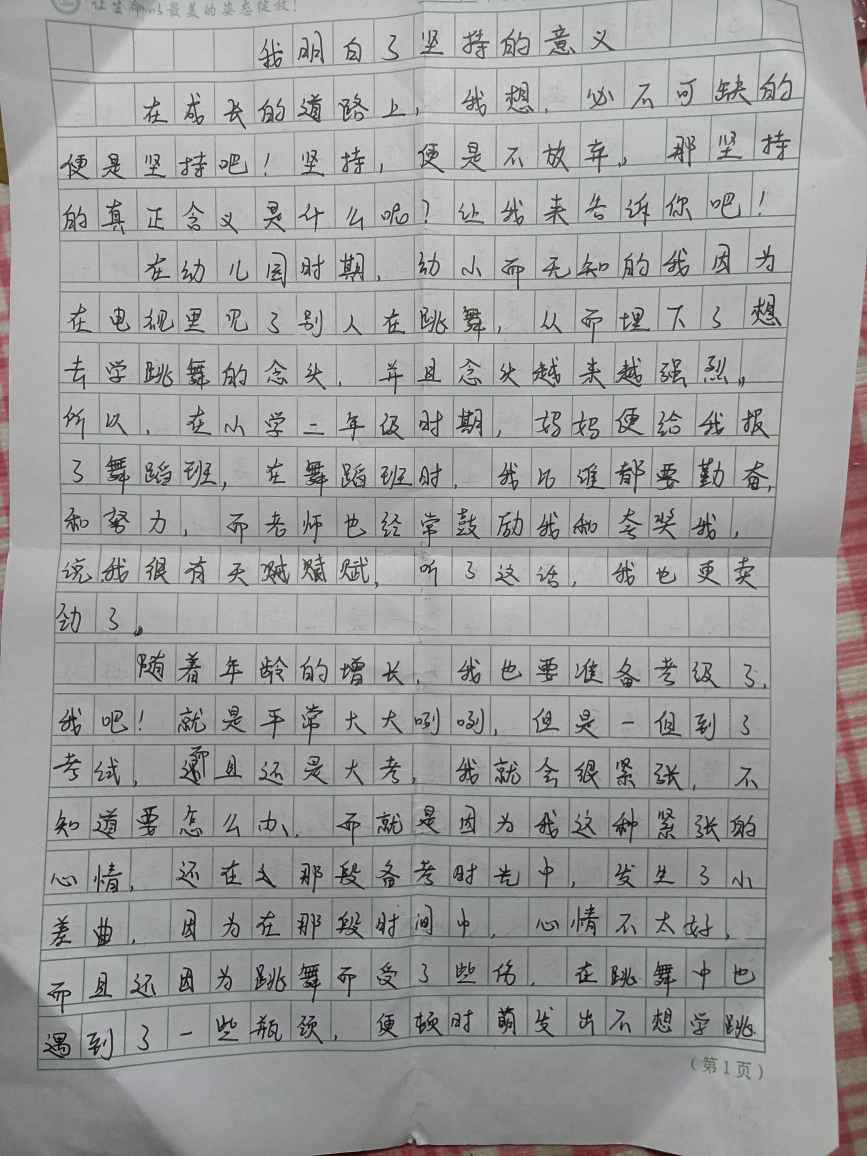 让生命以最美的姿态绽放！
我明白了坚持的意义
在成长的道路上，我想，必不可缺的
便是坚持吧！坚持，便是不放弃。那坚持
的真正含义是什么呢？让我来告诉你吧！
在幼儿园时期，幼小而无知的我因为
在电视里见了别人在跳舞，从而埋下了想
去学跳舞的念头，并且念头越来越强烈。
所以，在小学二年级时期，妈妈便给我报
了舞蹈班，在舞蹈班时，我比谁都要勤奋，
和努力，而老师也经常鼓励我和夸奖我，
说我很有天赋，听了这话，我也更卖
劲了。
随着年龄的增长，我也要准备考级了，
我吧！就是平常大大咧咧，但是一但到了
考试，而且还是大考，我就会很紧张，不
知道要怎么办、而就是因为我这种紧张的
心情，还在那段备考时光中，发生了小
差曲，因为在那段时间中，心情不太好，
而且还因为跳舞而受了些伤，在跳舞中也
遇到了一些瓶颈，便顿时萌发出不想学跳
（第1页）